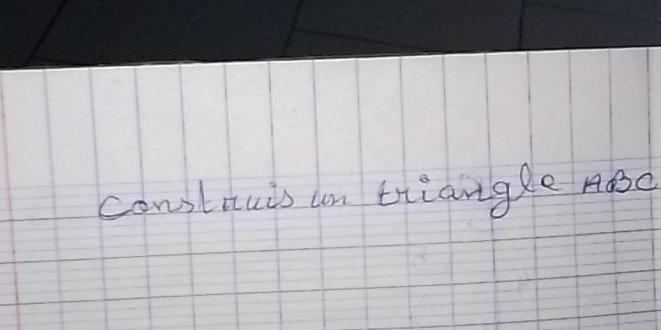 Construis un triangle ABC